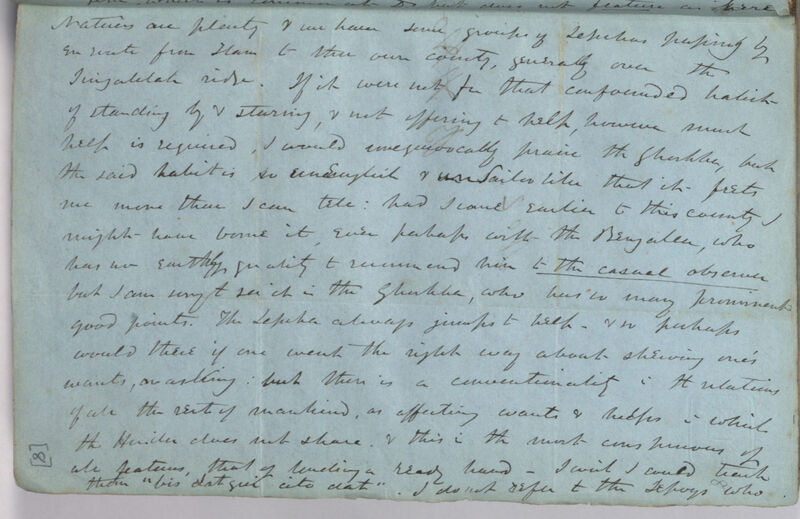 Natives are plenty & we have seen groups of Lepchas passing by
En route from Ilam to their own country, generally over the
Singalelah ridge. If it were not for that confounded habit
of standing by & staring, & not offering to help, however much
help is required, I would unequivocally praise th Ghorkha, but
the said habit is so unEnglish & unSailorlike that it frets
me more than I can tell: had I come earlier to this country I
might have borne it, even perhaps with the Bengalee, who
has no Earthly quality to recommend him to the casual observer
but I am sorry t see it in the Ghorkha, who has so many prominent
good points. The Lepcha always jumps t help - & so perhaps
would these if one went the right way about shewing one's
wants, or asking: but there is a conventionality i th relations
of all the rest of mankind, as affecting wants & helps i which
th Hindu does not share. & this i the most conspicuous of
all features, that of lending a ready hand - I wish I could teach
them "bis dat qui cito dat". I do not refer to the Sepoys who
[8]